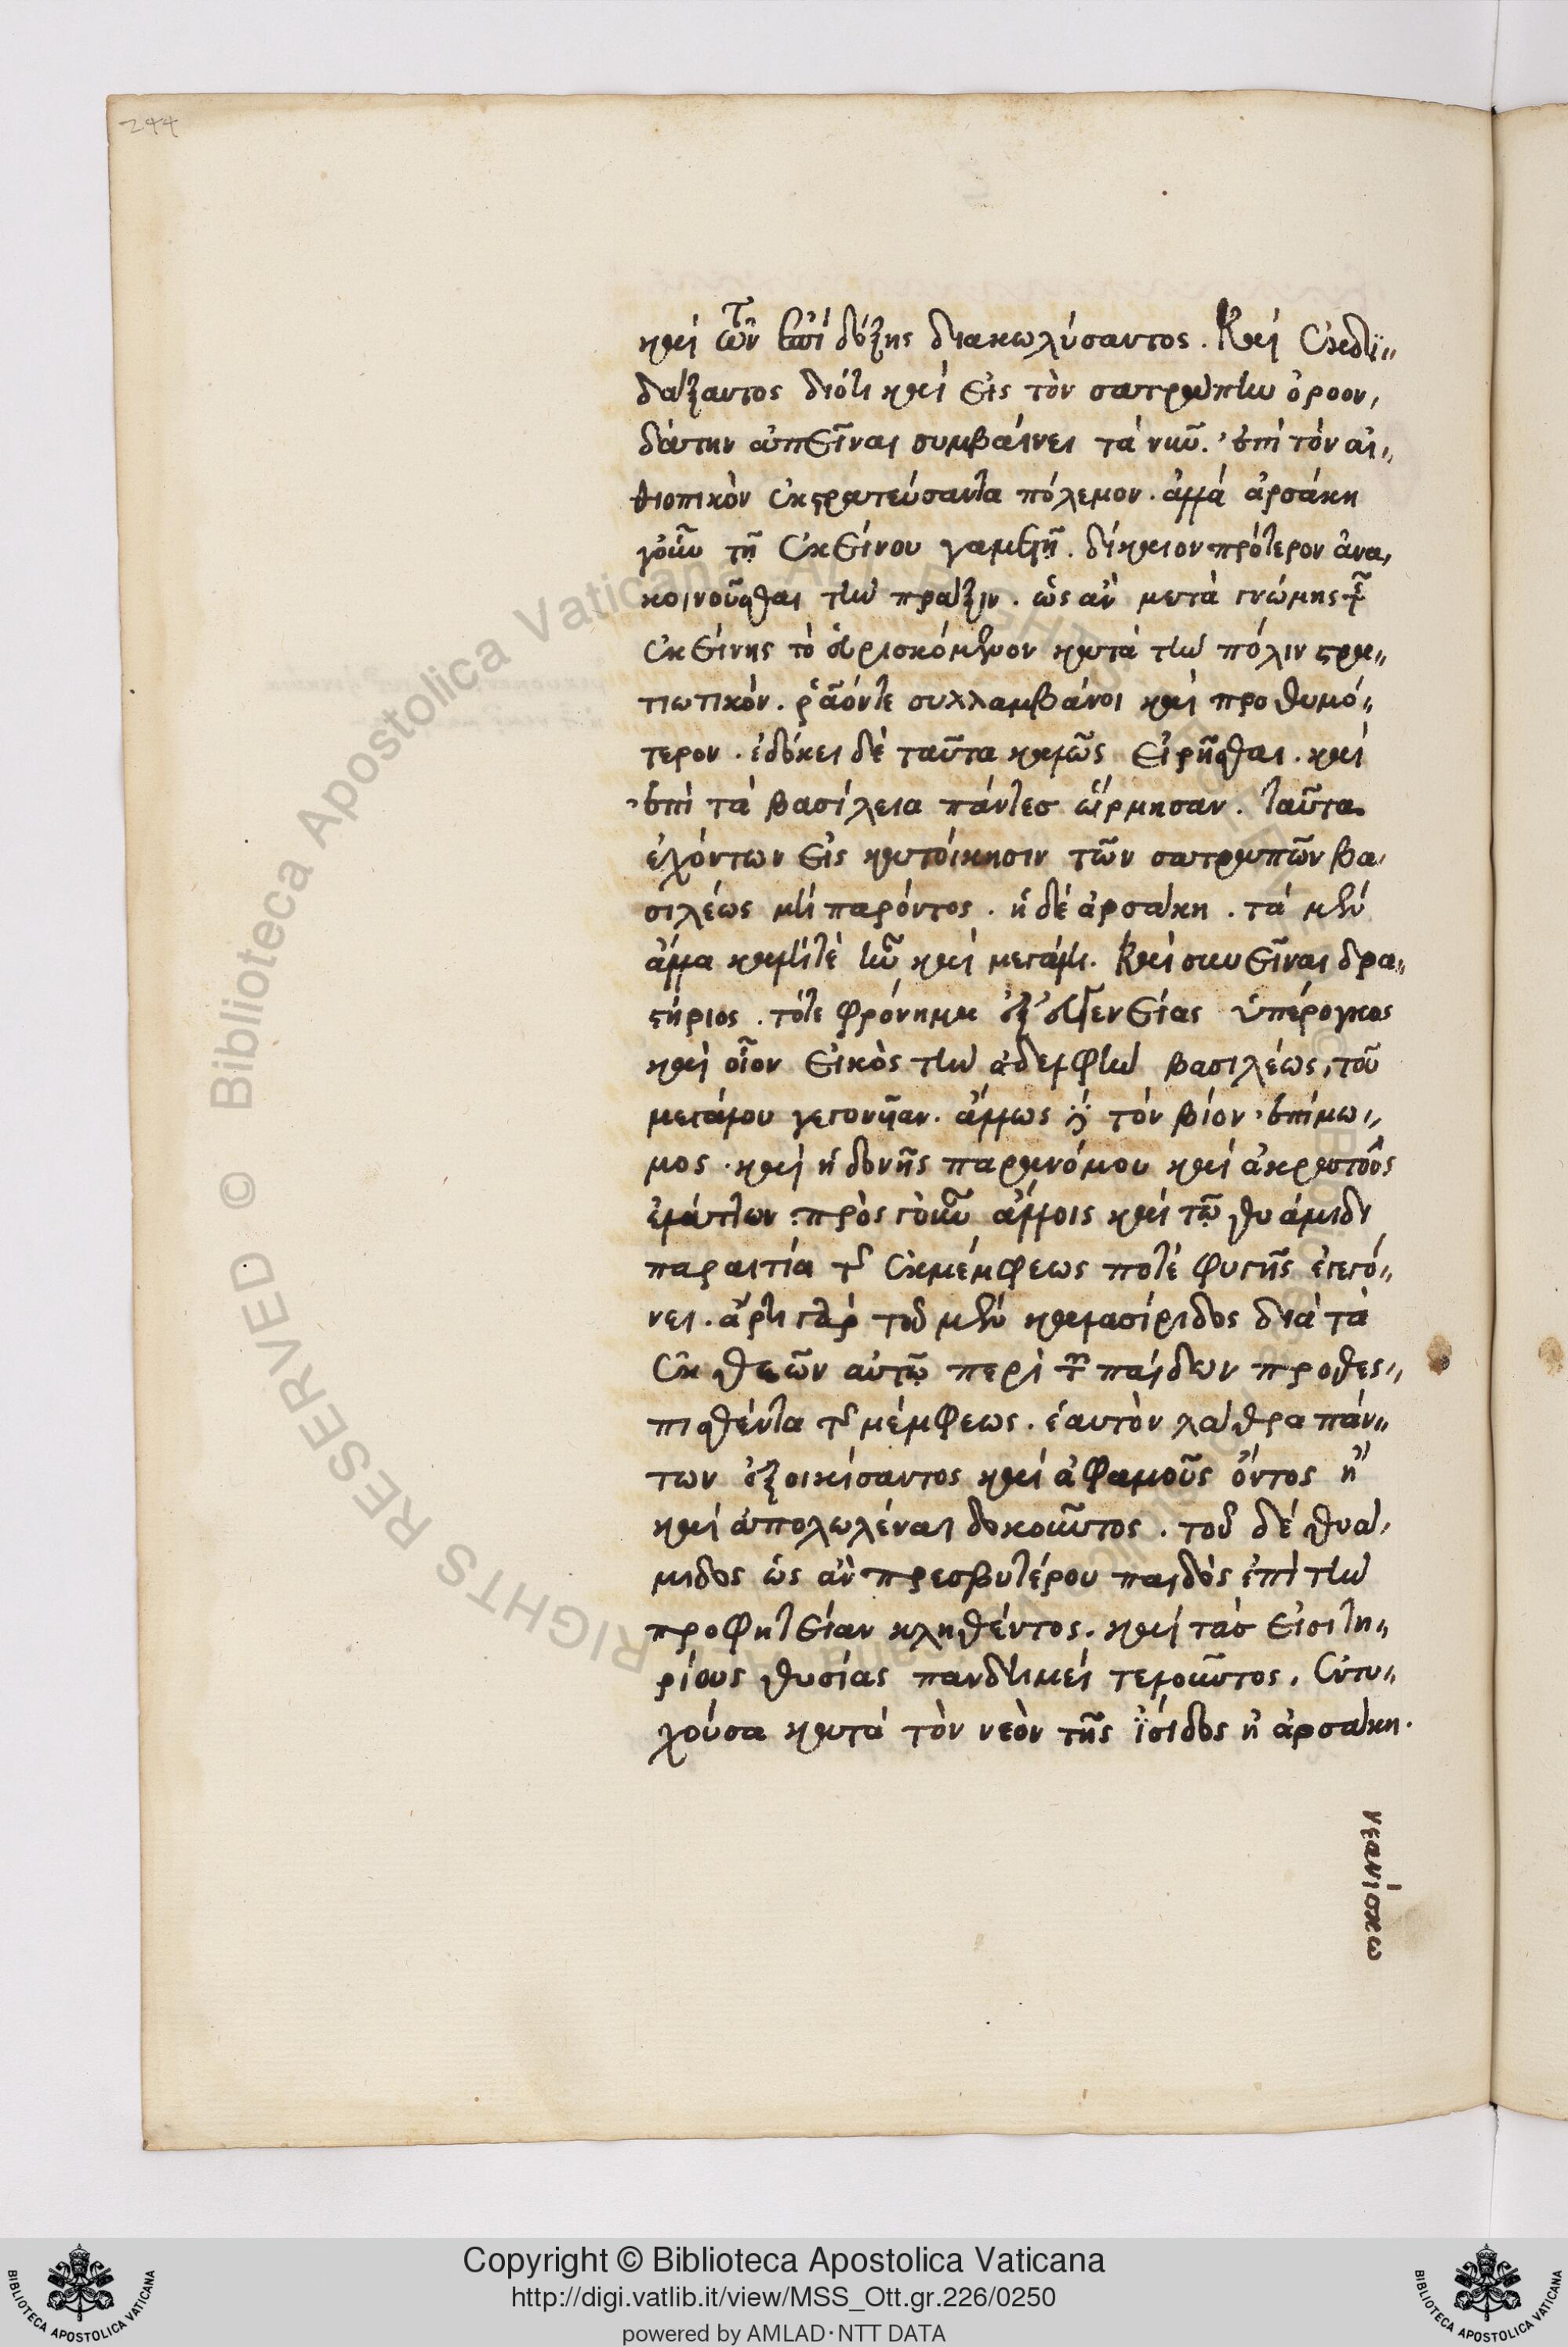 244
καὶ τῶν ἐπὶ δόξης διακωλύσαντος. Καὶ ἐκδι,,
δάξαντος διότι καὶ εἰς τὸν σατράπην ὀροον,
δάτην ἀπεῖναι συμβαίνει τὰ νῦν. ἐπὶ τὸν αἰ,,
θιοπικὸν ἐκστρατεύσαντα πόλεμον. ἀλλὰ ἀρσάκη
γοῦν τῇ ἐκείνου γαμετῇ. δίκαιον πρότερον ἀνα,
κοινοῦσθαι τὴν πράξιν. ὡς ἂν μετὰ γνώμης τῆς
ἐκείνης τὸ εὑρισκόμενον κατὰ τὴν πόλιν στρα,,
τιωτικόν. ῥᾶόντε συλλαμβάνοι καὶ προθυμό,,
τερον. ἐδόκει δὲ ταῦτα καλῶς εἰρῆσθαι. καὶ
ἐπὶ τὰ βασίλεια πάντεσ ὥρμησαν. ταῦτα
ἐχόντων εἰς κατοίκησιν τῶν σατραπῶν βα,
σιλέως μὴ παρόντος. ἡ δὲ ἀρσάκη. τὰ μὲν
ἄλλα καλήτὲ ἦν καὶ μεγάλη. Καὶ συνεῖναι δρα,,
στήριος. τότε φρόνημα ἐξ εὐγενείας ὑπέρογκος
καὶ οἷον εἰκὸς τὴν ἀδελφὴν βασιλέως, τοῦ
μεγάλου γεγονῆαν. ἄλλως δὲ τὸν βίον ἐπίμω,,
μος. καὶ ἡδονῆς παρανόμου καὶ ἀκρατοῦς
ἐλάττων. πρὸς γοῦν ἄλλοις καὶ τῷ θυάμιδι
παραιτία τῆς ἐκ μέμφεως ποτὲ φυγῆς ἐγεγό,,
νει. ἄρτι γὰρ τοῦ μὲν καλασίριδος διὰ τὰ
ἐκ θεῶν αὐτῷ περὶ τῶν παίδων προθες,,
πισθέντα τῆς μέμφεως. ἑαυτὸν λάθρα πάν,,
των ἐξοικίσαντος καὶ ἀφαμοῦς ὄντος ἢ
καὶ ἀπολωλέναι δοκοῦντος. τοῦ δὲ θυά,
μιδος ὡς ἂν πρεσβυτέρου παιδὸς ἐπὶ τὴν
προφητείαν κληθέντος. καὶ τὰσ εἰσιτη,,
ρίους θυσίας πανδημεὶ τελοῦντος, ἐντυ,,
χούσα κατὰ τὸν νεὸν τῆς ἴσιδος ἡ ἀρσάκη.
νεανίσκω
Copyright © Biblioteca Apostolica Vaticana
http://digi.vatlib.it/view/MSS_Ott.gr.226/0250
powered by AMLAD·NTT DATA